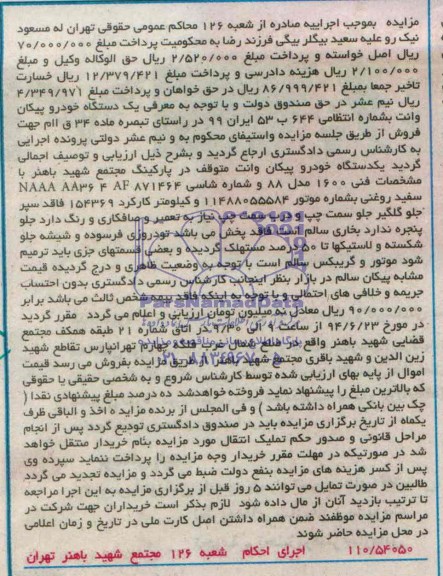 مزایده بموجب اجراییه صادره از شعبه ۱۲۶ محاکم عمومی حقوقی تهران له مسعود
نیک رو علیه سعید بیگلر بیگی فرزند رضا به محکومیت پرداخت مبلغ ۷۰/۰۰۰/۰۰۰
ریال اصل خواسته و پرداخت مبلغ ۲/۵۲۰/۰۰۰ ریال حق الوکاله وکیل و مبلغ
۲/۱۰۰/۰۰۰ ریال هزینه دادرسی و پرداخت مبلغ ۱۲/۳۷۹/۴۲۱ ریال خسارت
تاخیر جمعا بمبلغ ۸۶/۹۹۹/۴۲۱ ریال در حق خواهان و پرداخت مبلغ ۴/۳۴۹/۹۷۱
ریال نیم عشر در حق صندوق دولت و با توجه به معرفی یک دستگاه خودرو پیکان
وانت بشماره انتظامی ۶۴۴ ب ۵۳ ایران ۹۹ در راستای تبصره ماده ۳۴ ق اام جهت
فروش از طریق جلسه مزایده واستیفای محکوم به و نیم عشر دولتی پرونده اجرایی
به کارشناس رسمی دادگستری ارجاع گردید و بشرح ذیل ارزیابی و توصیف اجمالی
گردید یکدستگاه خودرو پیکان وانت متوقف در پارکینگ مجتمع شهید باهنر با
مشخصات فنی ۱۶۰۰ مدل ۸۸ و شماره شاسی NAAA AA۳۶ ۴ AF ۸۷۱۴۶۴
سفید روغنی بشماره موتور ۱۱۴۸۸۰۵۵۵۸۴ و کیلومتر کارکرد ۱۵۴۳۶۹ فاقد سپر
جلو گلگیر جلو سمت چپ و راست نیاز به تعمیر و صافکاری و رنگ دارد جلو
پنجره ندارد بخاری سالم است فاقد پخش می باشد تودروزی فرسوده و شیشه جلو
شکسته و لاستیکها تا ۵۰ درصد مستهلک گردیده و بعضی قسمتهای جزی باید ترمیم
شود موتور و گریبکس سالم است با توجه به وضعیت ظاهری و درج گردیده قیمت
مشابه پیکان سالم در بازار بنظر اینجانب کارشناس رسمی دادگستری بدون احتساب
جریمه و خلافی های احتمالی و با توجه به اینکه فاقد بیمه شخص ثالث می باشد برابر
۹۰/۰۰۰/۰۰۰ ریال معادل نه میلیون تومان ارزیابی و اعلام می گردد مقرر گردید
در مورخ ۹۴/۶/۲۳ از ساعت ۹ الی ۹/۳۰ در اتاق شماره ۲۱ طبقه همکف مجتمع
قضایی شهید باهنر واقع در ضلع شمال غربی فلکه چهارم تهرانپارس تقاطع شهید
زین الدین و شهید باقری مجتمع شهید باهنر از طریق مزایده بفروش می رسد قیمت
اموال از پایه بهای ارزیابی شده توسط کارشناس شروع و به شخصی حقیقی یا حقوقی
که بالاترین مبلغ را پیشنهاد نماید فروخته خواهدشد ده درصد مبلغ پیشنهادی نقدا (
چک بین بانکی همراه داشته باشد ) و فی المجلس از برنده مزایده اخذ و الباقی ظرف
یکماه از تاریخ برگزاری مزایده باید در صندوق دادگستری تودیع گردد پس از انجام
مراحل قانونی و صدور حکم تملیک انتقال مورد مزایده بنام خریدار منتقل خواهد
شد در صورتیکه در مهلت مقرر خریدار وجه مزایده را پرداخت ننماید سپرده وی
پس از کسر هزینه های مزایده بنفع دولت ضبط می گردد و مزایده تجدید می گردد
طالبین در صورت تمایل می توانند ۵ روز قبل از برگزاری مزایده به این اجرا مراجعه
تا ترتیب بازدید آنان از مال داده شود لازم بذکر است خریداران جهت شرکت در
مراسم مزایده موظفند ضمن همراه داشتن اصل کارت ملی در تاریخ و زمان اعلامی
در محل مزایده حاضر شوند
۱۱۰/۵۴۰۵۰ اجرای احکام شعبه ۱۲۶ مجتمع شهید باهنر تهران